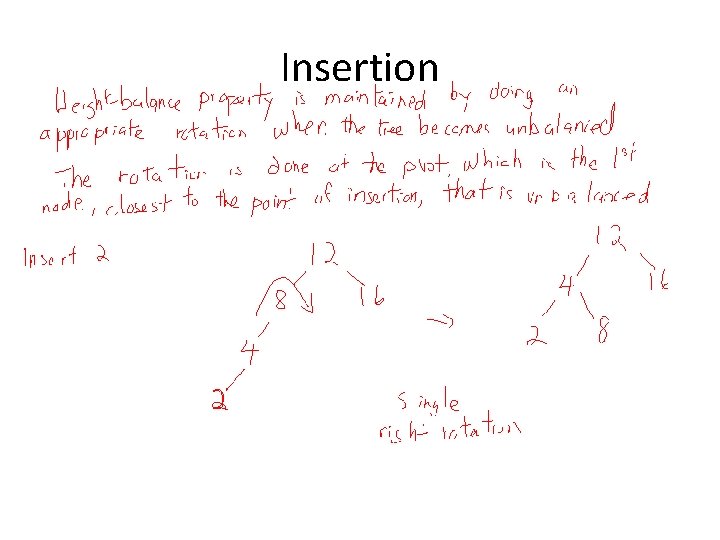 Insertion
Height-balance property is maintained by doing an
appropriate rotation when the tree becomes unbalanced
The rotation is done at the pivot, which is the 1st
node, closest to the point of insertion, that is unbalanced
Insert 2
12
8 16
4
2
→
12
4 16
2 8
single
right rotation